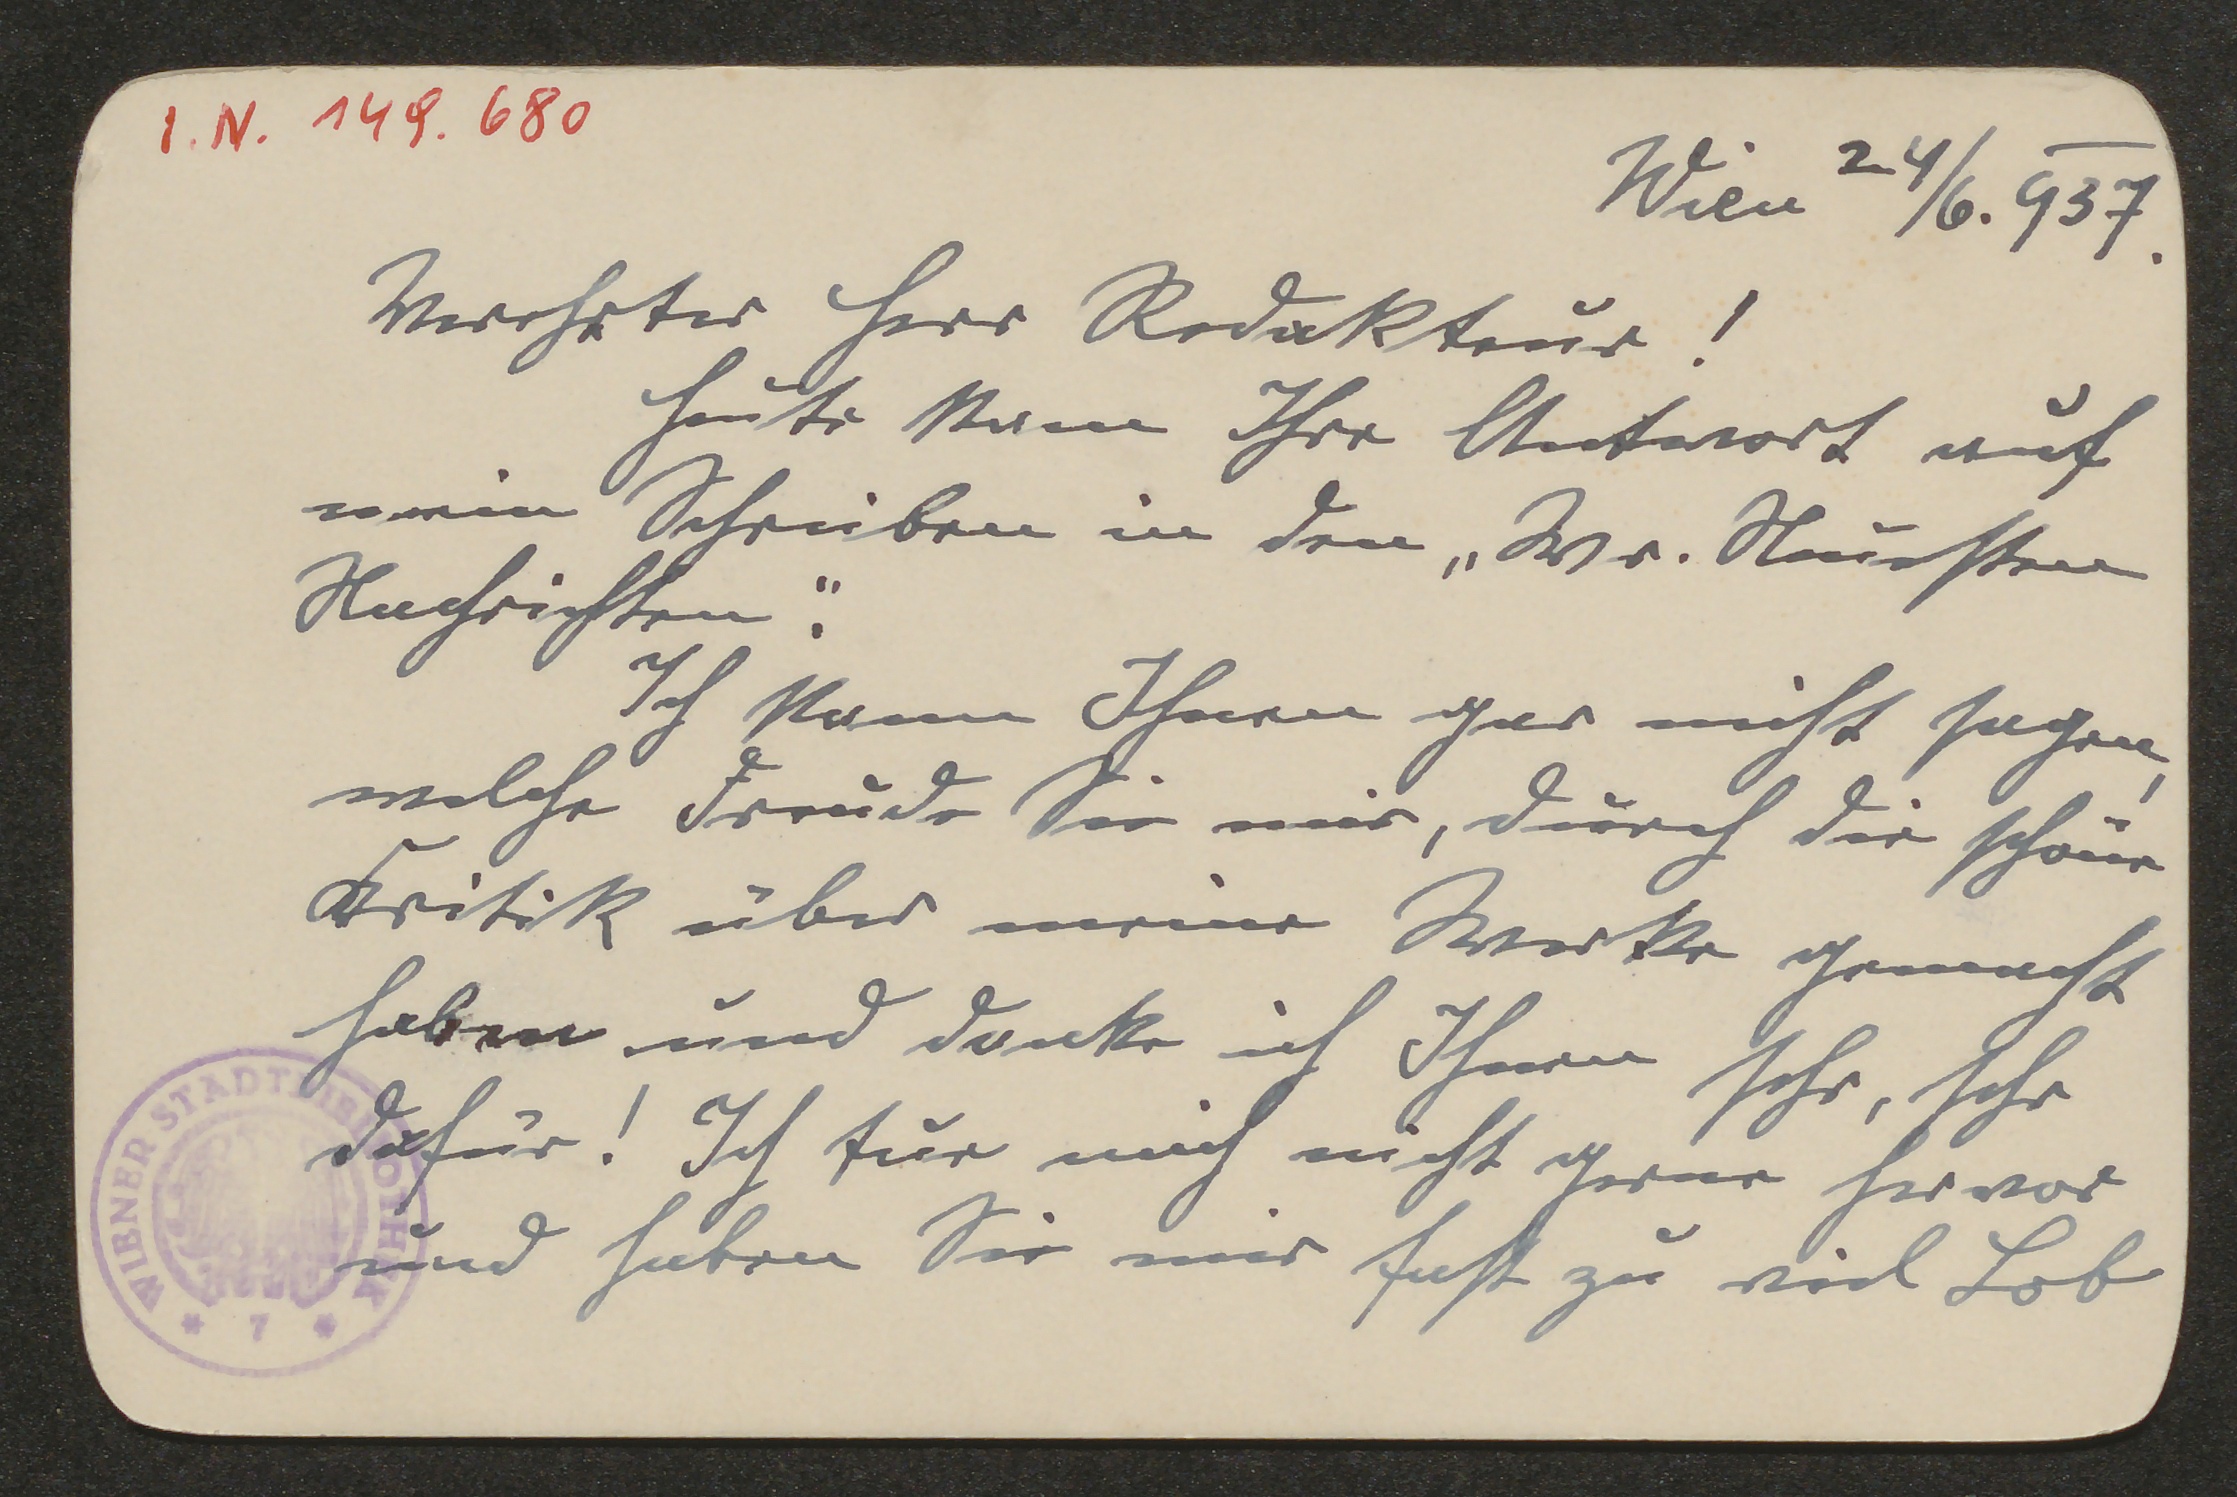 I.N. 149.680
Wien 24/6. 937.
Verehrter Herr Redakteur!
Heute kam Ihre Antwort auf
mein Schreiben in den „Wr. Neuesten
Nachrichten“.
Ich kann Ihnen gar nicht sagen,
welche Freude Sie mir, durch die schöne
Kritik über meine Werke gemacht
haben und danke ich Ihnen sehr, sehr
dafür! Ich tue mich nicht gerne hervor
und haben Sie mir fast zu viel Lob
WIENER STADTBIBLIOTHEK
* 7 *